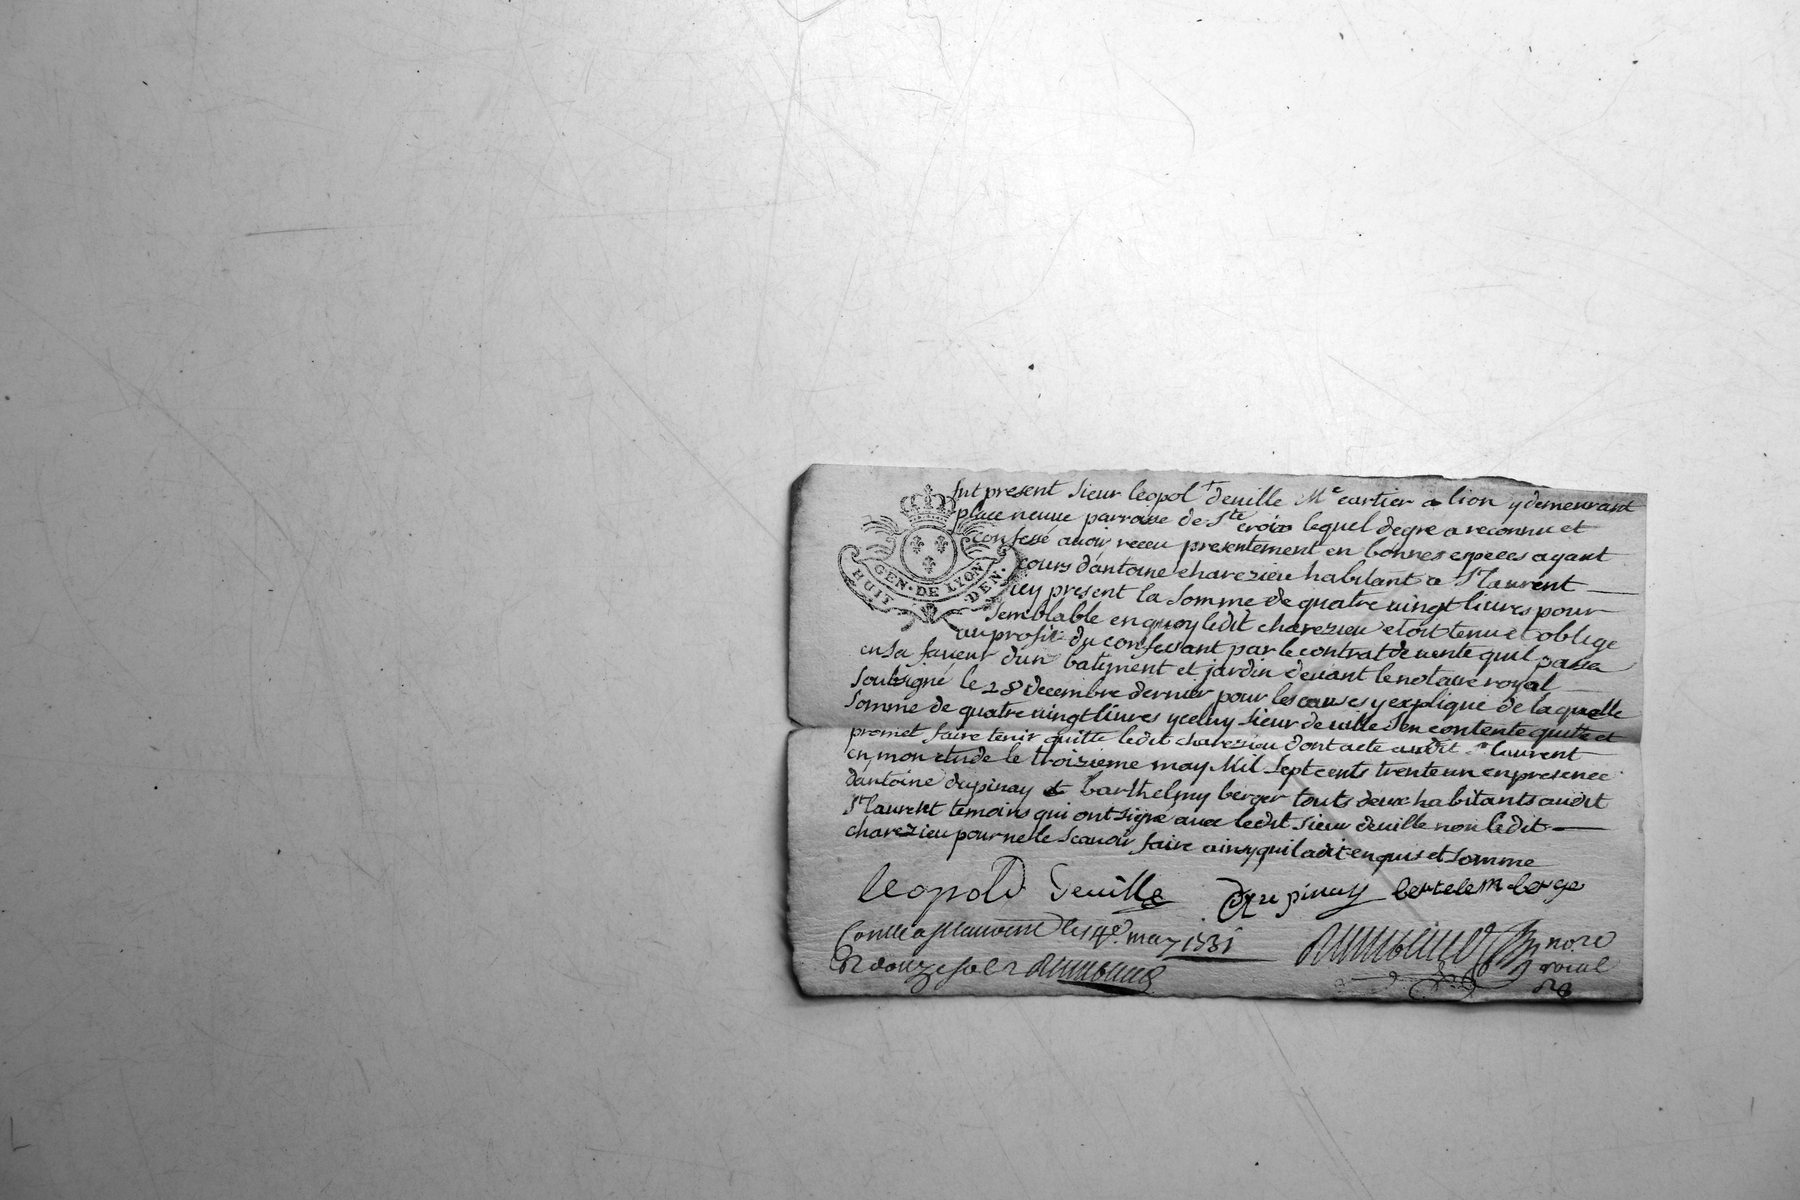 fut present sieur leopol^t deuille M^e cartier a lion y demeurant
place neuue parroisse de S^te croix lequel degre a reconnu et
confessé auoir receu presentement en bonnes especes ayant
cours d'antoine charezieu habitant a S^t laurent
icy present la somme de quatre uingt liures pour
semblable en quoy ledit charezieu etoit tenu et oblige
au profit du confessant par le contrat de uente quil passa
en sa faueur dun batiment et jardin deuant le notaire royal
soubsigné le 28 decembre dernier pour les causes y expliqué de laquelle
somme de quatre uingt liures yceluy sieur deuille sen contente quitte et
promet faire tenir quitte ledit charezieu dont acte audit S^t laurent
en mon etude le troizieme may Mil sept cents trente un en presence
d'antoine dupinay et barthelmy berger touts deux habitants audit
S^t laurent temoins qui ont signé auec ledit sieur deuille non ledit
charezieu pour ne le scauoir faire ainsy quil a dit enquis et somme
GEN · DE LYON
HUIT · DEN ·
leopold deuille dupinay bertelemy berge
Conllé a S^t laurent le 14^e may 1731
R douze sols
no^re
roial